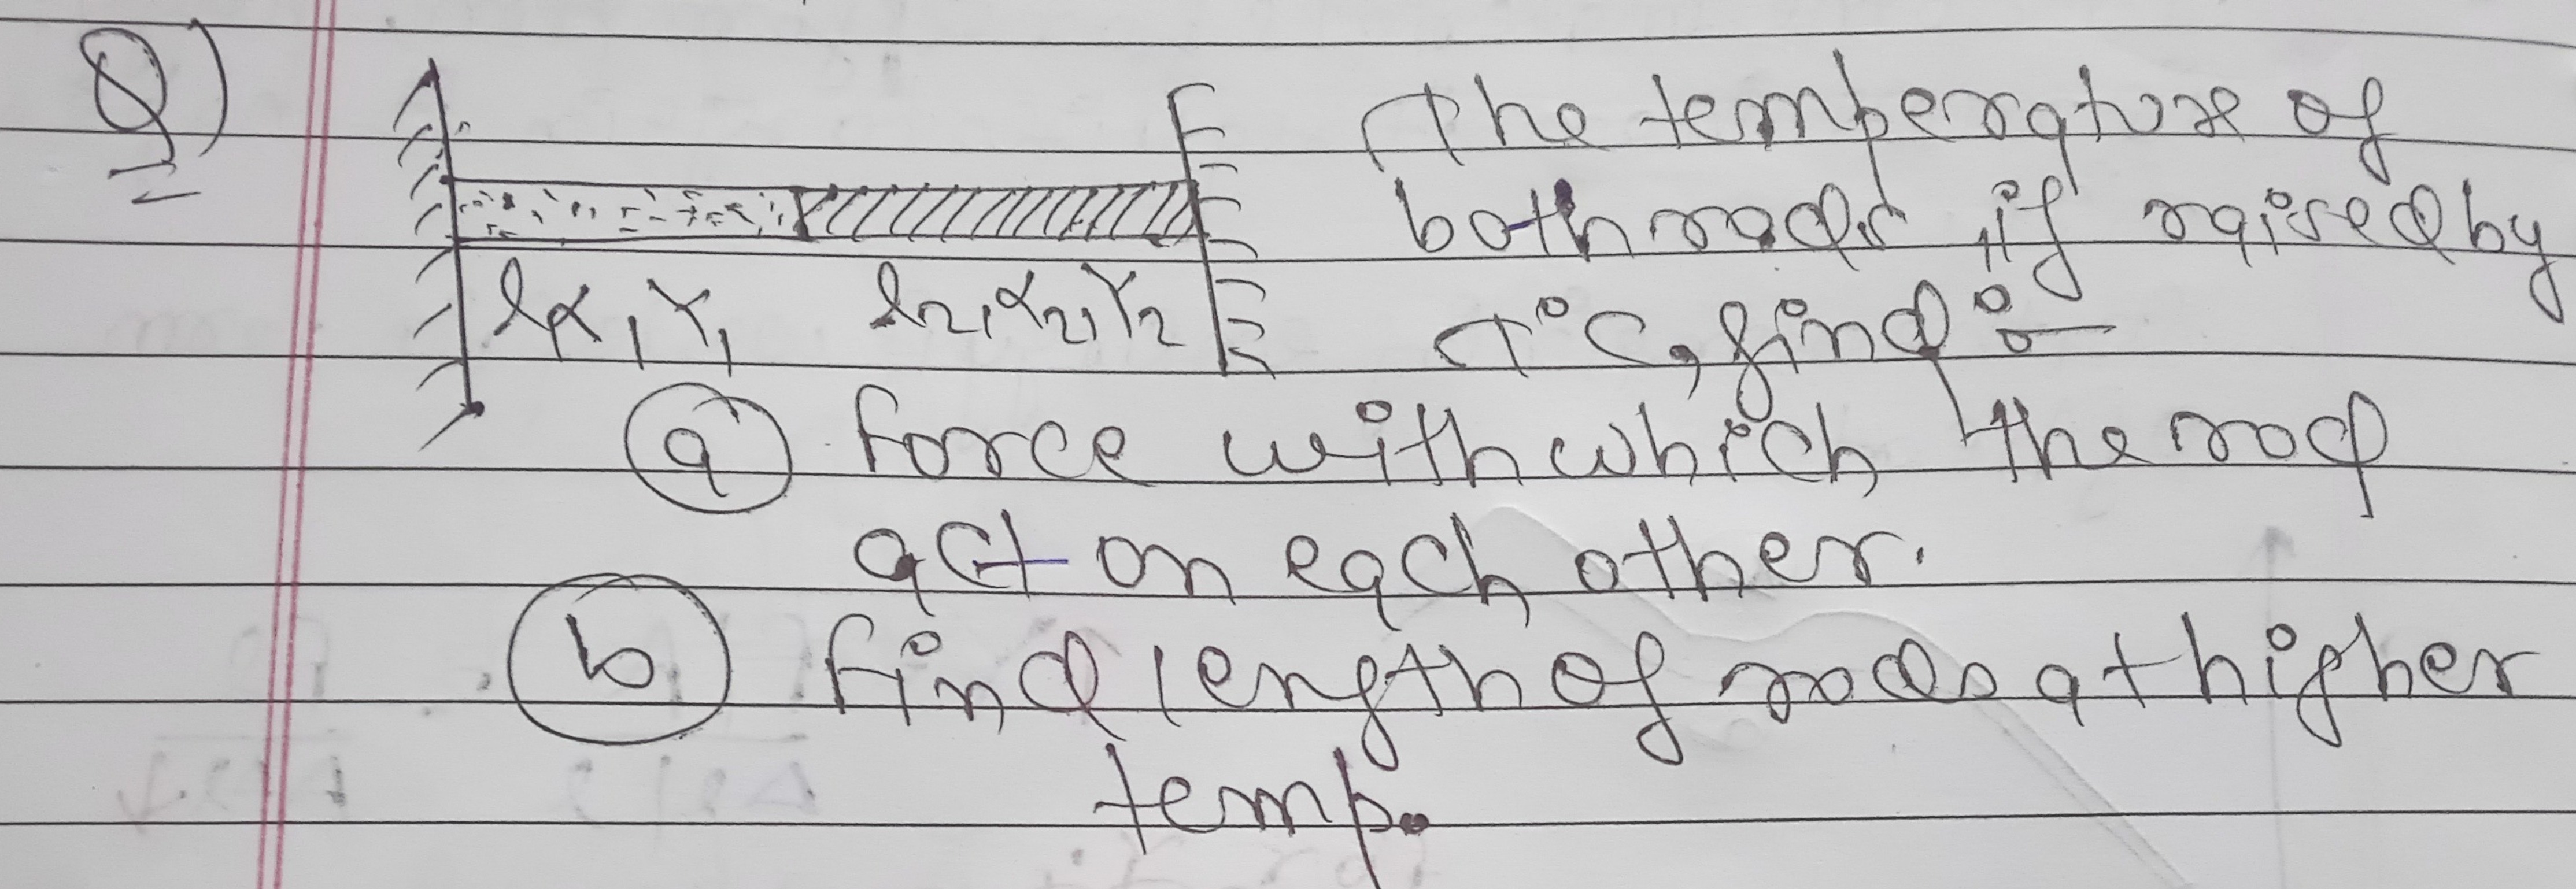 Q) The temperature of
both rods, if raised by
l1 α1 Y1 l2, α2, Y2 T°C, find :-
(a) Force with which the rod
act on each other.
(b) Find length of rods at higher
temp.